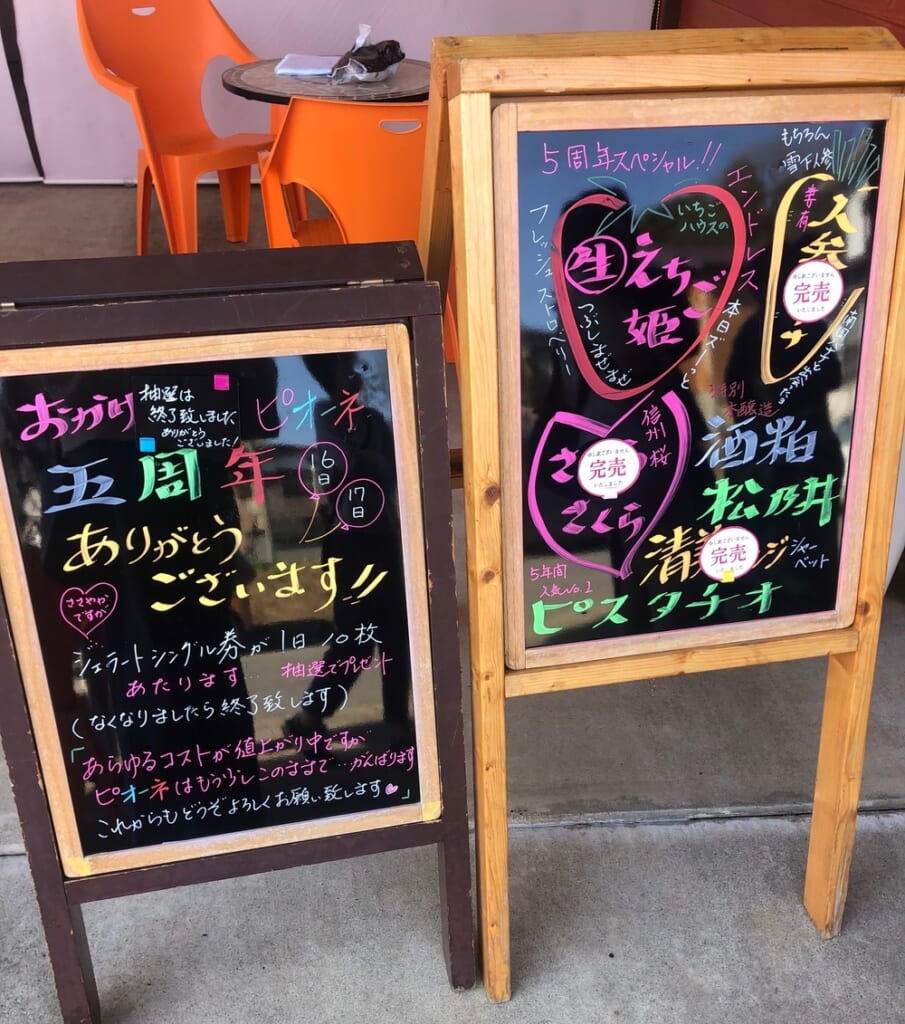 おかげ
抽選は
終了致しました
ありがとう
ございました!
ピオーネ
五周年
16日
17日
ありがとう
ございます!!
ささやか
ですが
ジェラートシングル券が1日10枚
あたります… 抽選でプレゼント
(なくなりましたら終了致します)
「あらゆるコストが値上がり中ですが
ピオーネはもう少しこのままで…がんばります
これからもどうぞよろしくお願い致します」
5周年スペシャル!!
いちご
ハウスの
生 えちご
姫
フレッシュストロベリー
つぶしまぜまぜ
本日ズーっと
エンドレス
もちろん
雪下人参
妻有
申し訳ございません
完売
いたしました
信州
桜
さくら
さくら
申し訳ございません
完売
いたしました
特別
本醸造
酒粕
松乃井
清美
ジ
シャー
ベット
申し訳ございません
完売
いたしました
5年間
人気No.1
ピスタチオ